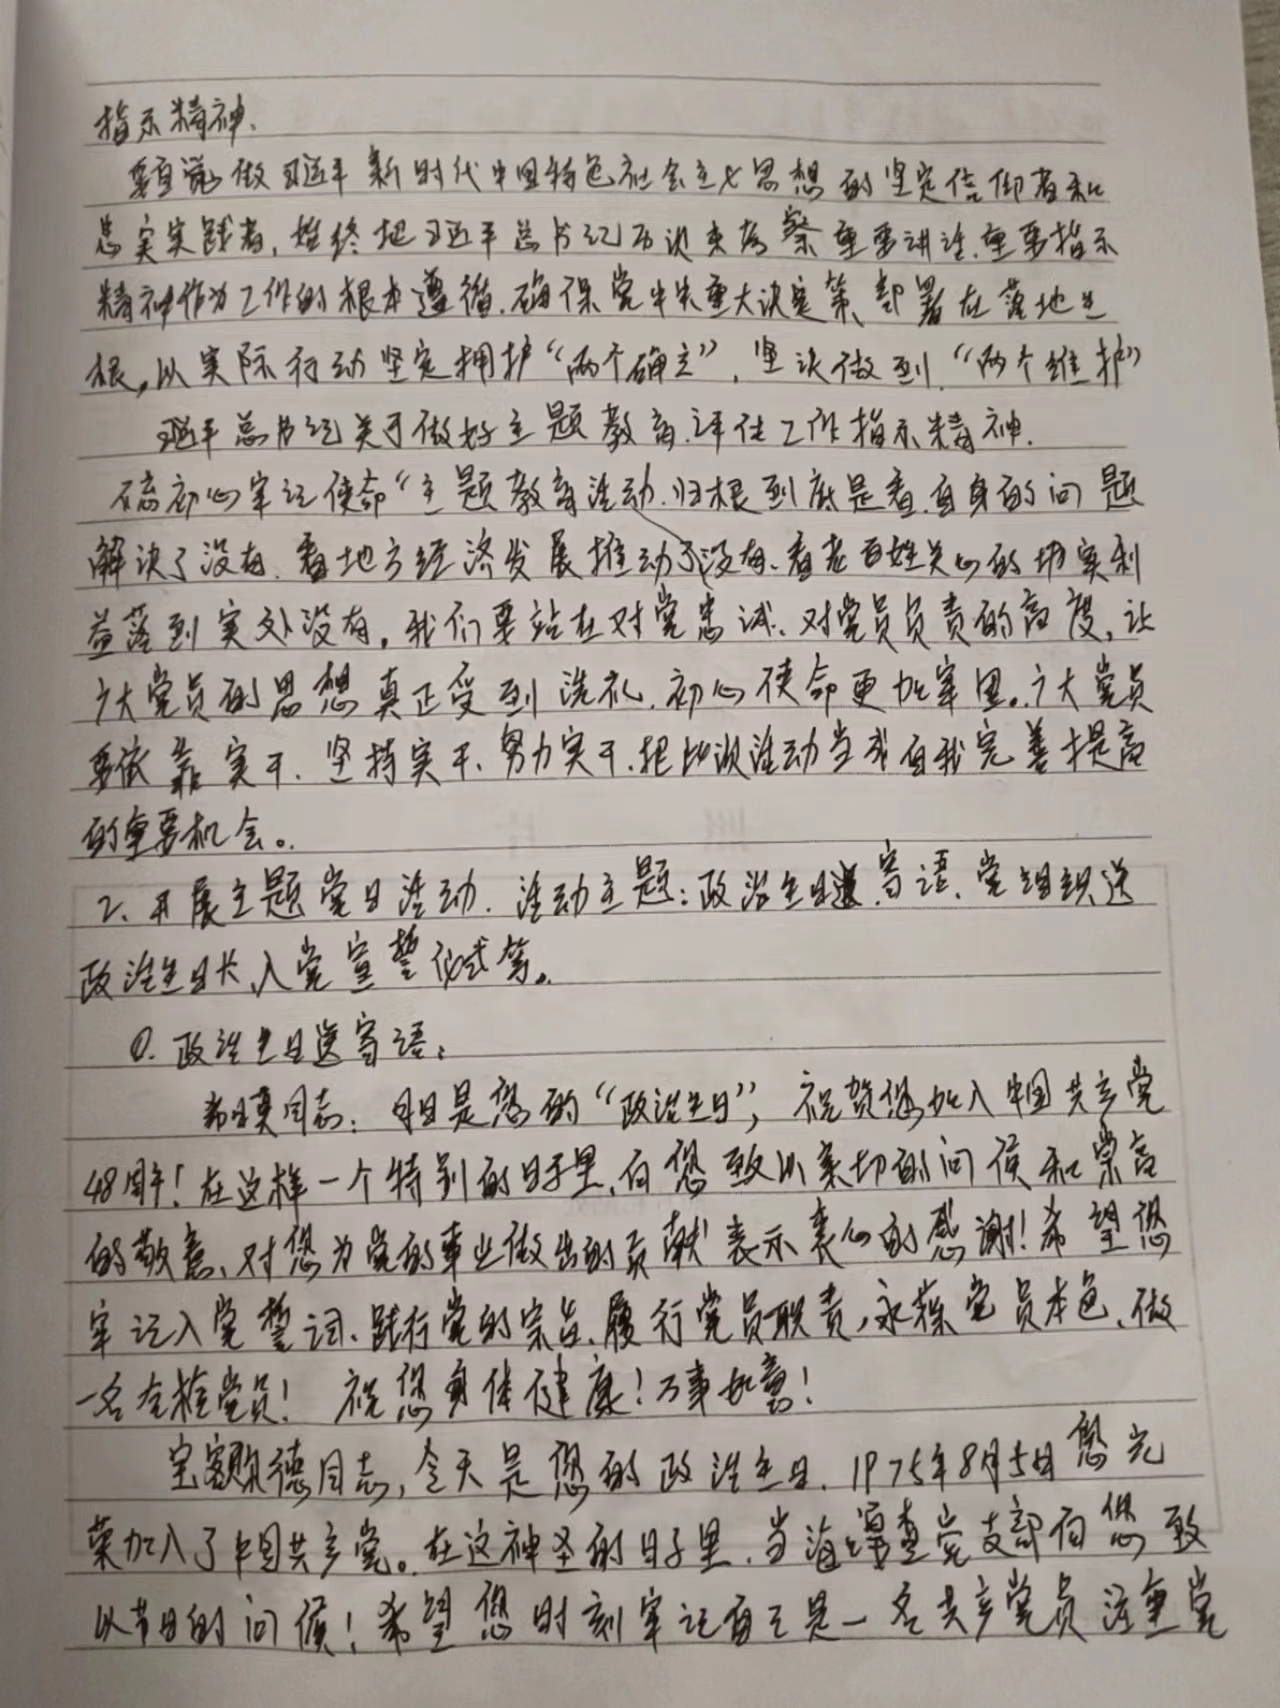 指示精神.
要自觉做习近平新时代中国特色社会主义思想的坚定信仰者和
忠实实践者,始终把习近平总书记历次来考察重要讲话.重要指示
精神作为工作的根本遵循.确保党中央重大决定策、部署在落地生
根,以实际行动坚定拥护“两个确立”,坚决做到.“两个维护”
习近平总书记关于做好主题教育.工作指示精神.
初心牢记使命“主题教育活动.归根到底是看.自身的问题
解决了没有.看地方经济发展推动了没有、看老百姓关心的切实利
益落到实处没有。我们要站在对党忠诚、对党员负责的高度,让
广大党员的思想真正受到洗礼.初心使命更加牢固。广大党员
要依靠实干、坚持实干、努力实干.把此次活动当成自我完善提高
的重要机会。
2、开展主题党日活动.活动主题:政治生日送寄语、党组织送
政治生日卡、入党宣誓仪式等。
①.政治生日送寄语:
同志:今日是您的“政治生日”,祝贺您加入中国共产党
48周年!在这样一个特别的日子里,向您致以亲切的问候和崇高
的敬意、对您为党的事业做出的贡献表示衷心的感谢!希望您
牢记入党誓词、践行党的宗旨、履行党员职责,永葆党员本色、做
一名合格党员!祝您身体健康!万事如意!
宝额尔德同志,今天是您的政治生日.1975年8月5日您光
荣加入了中国共产党。在这神圣的日子里.党支部向您致
以节日的问候!希望您时刻牢记自己是一名共产党员注重党